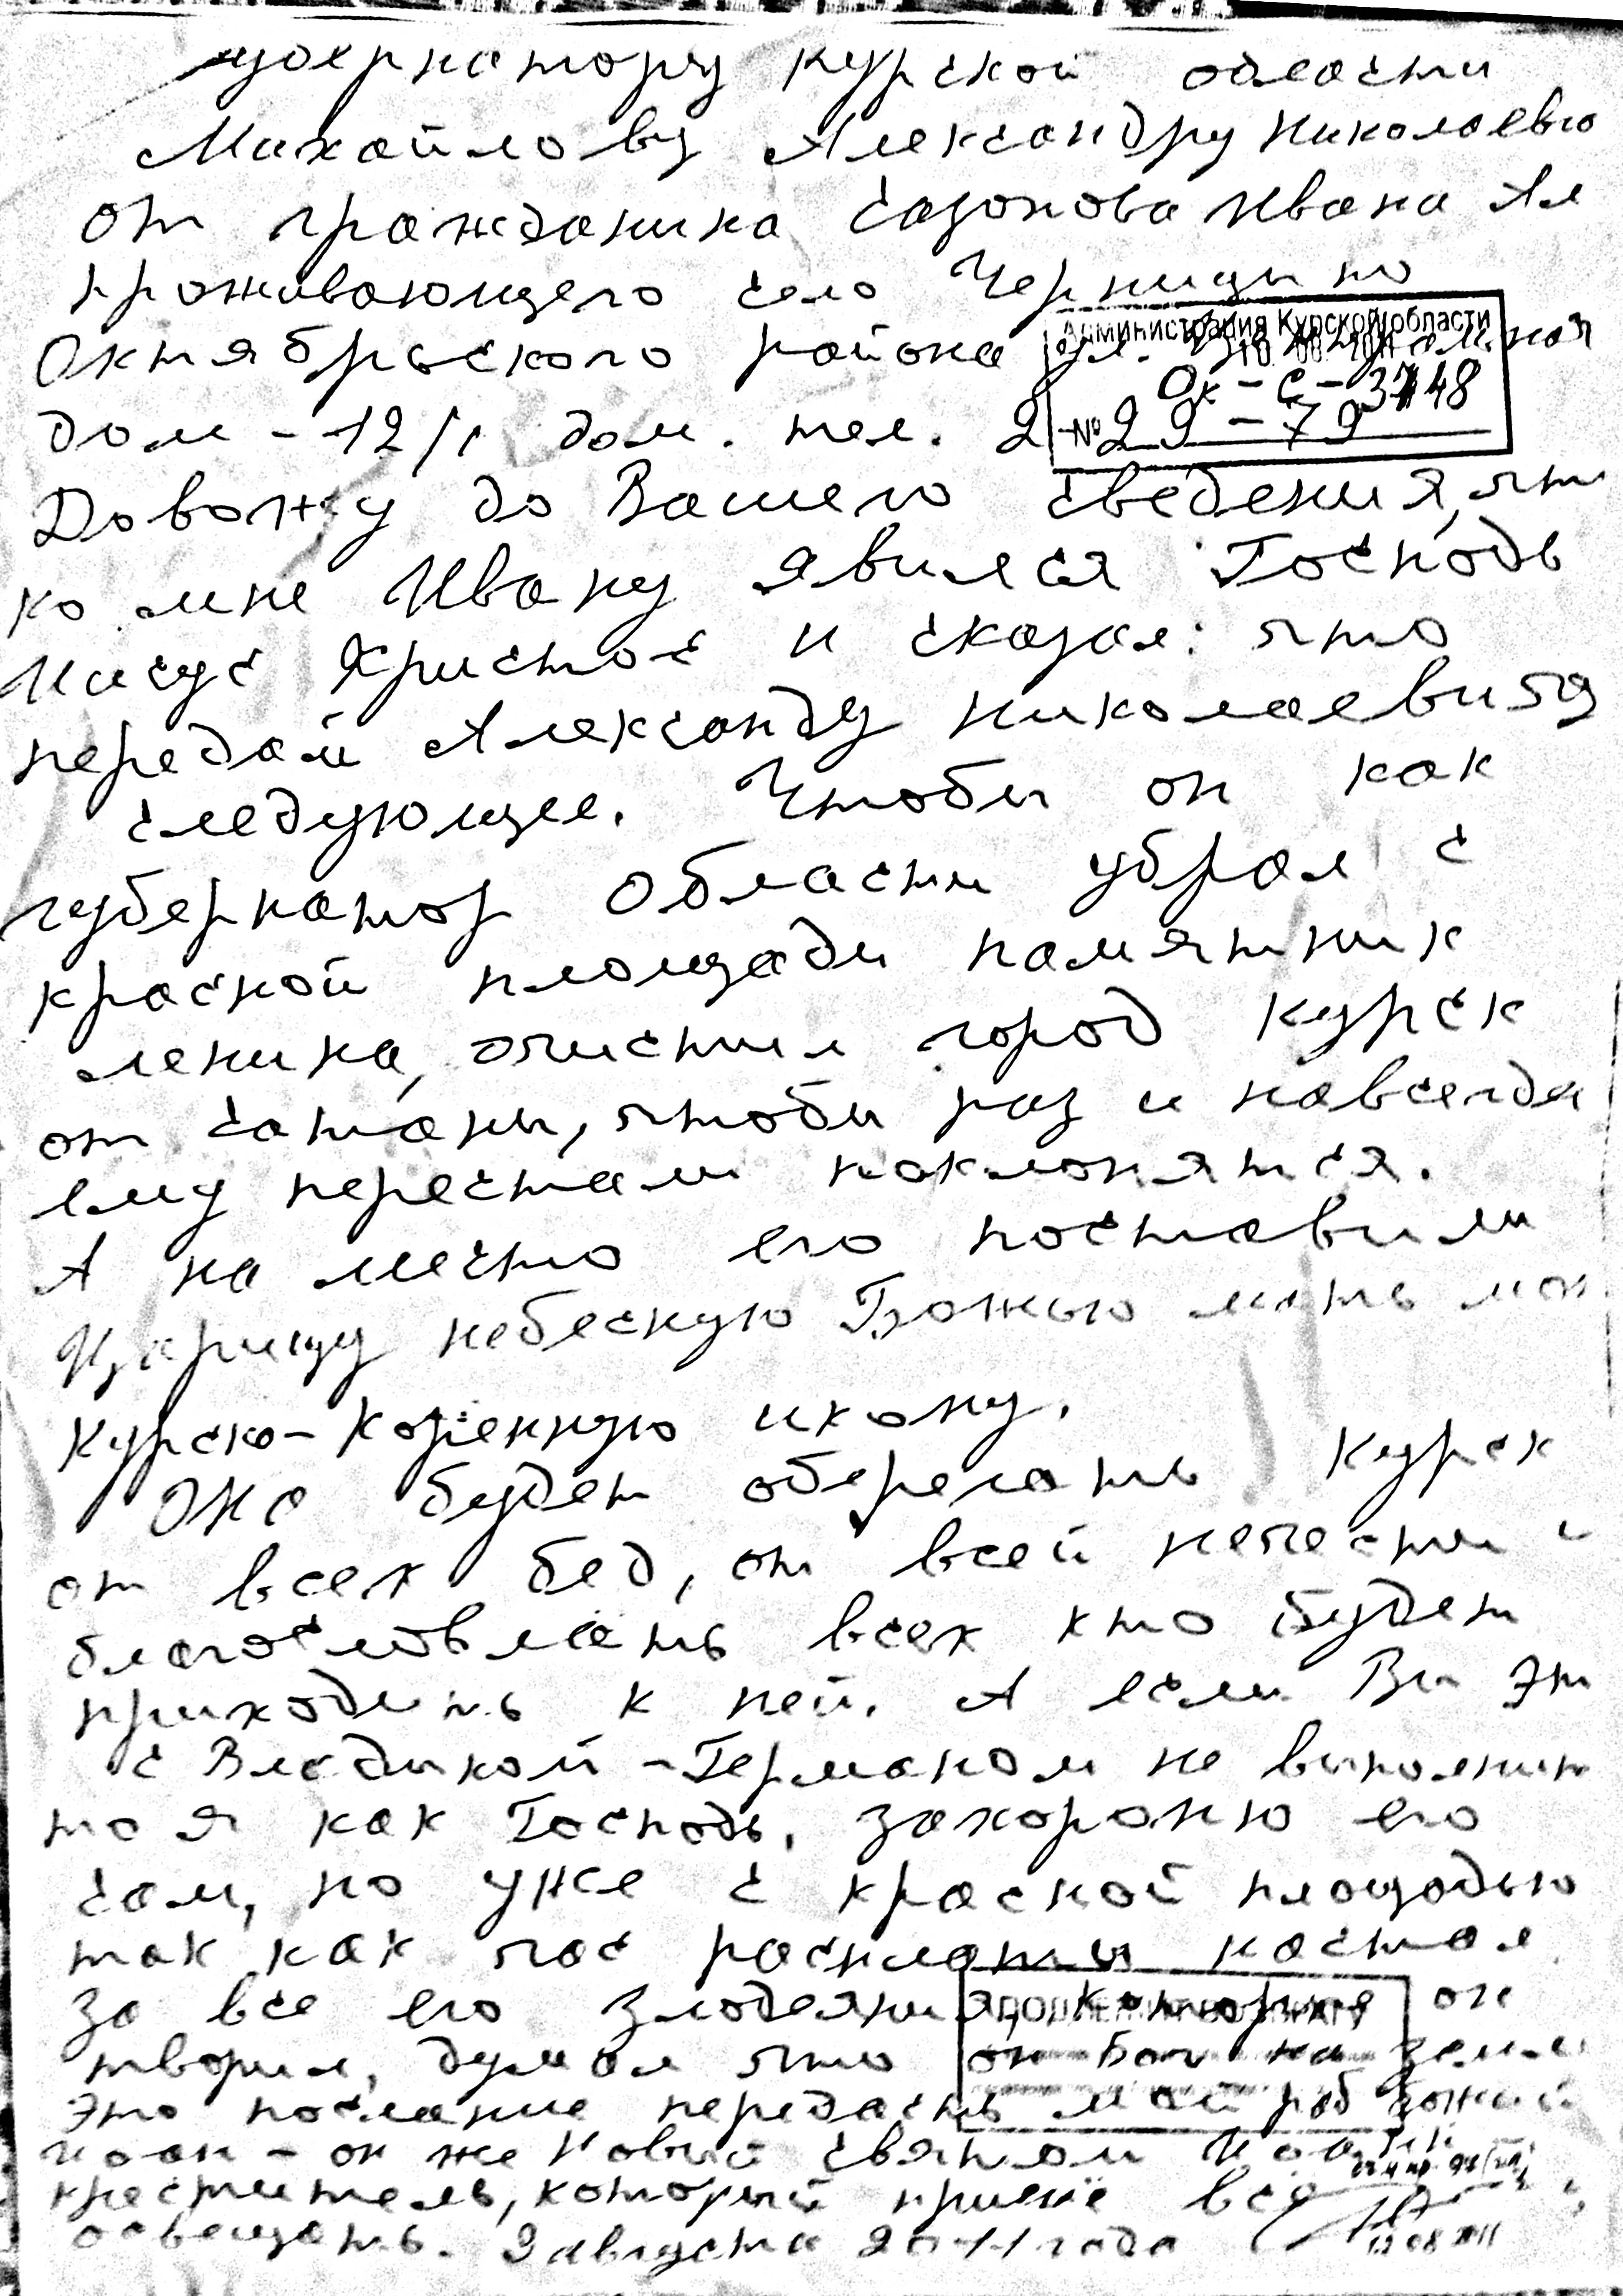 губернатору Курской области
Михайлову Александру Николаевю
от гражданина Сазонова Ивана Ал
проживающего село Черницыно
Октябрьского района ул.
Администрация Курской области
Ок-С-3748
дом-12/1 дом. тел. 2-29-79
№
Довожу до Вашего сведения, что
ко мне Ивану явился Господь
Иисус Христос и сказал: что
передай Александу Николаевичу
следующее. Чтобы он как
губернатор области убрал с
красной площади памятник
ленина, очистил город Курск
от сатаны, чтобы раз и навсегда
ему перестали поклонятся.
А на место его поставили
Царицу небескую Божью мать мою
Курско-Коренную икону.
Она будет оберегать Курск
от всех бед, от всей нечести и
благословлять всех кто будет
приходить к ней. А если Вы эт
с Владыкой-Германом не выполнит
то я как Господь, захороню его
сам, но уже с красной площадью
так как час расплаты настал
за все его злодеяния, которые он
творил, думал что он Бог на земле
Это послание передасть мой раб божий
Иоан - он же Новый святым Иоан
креститель, который прише все
освещать. 9 августа 2011 года